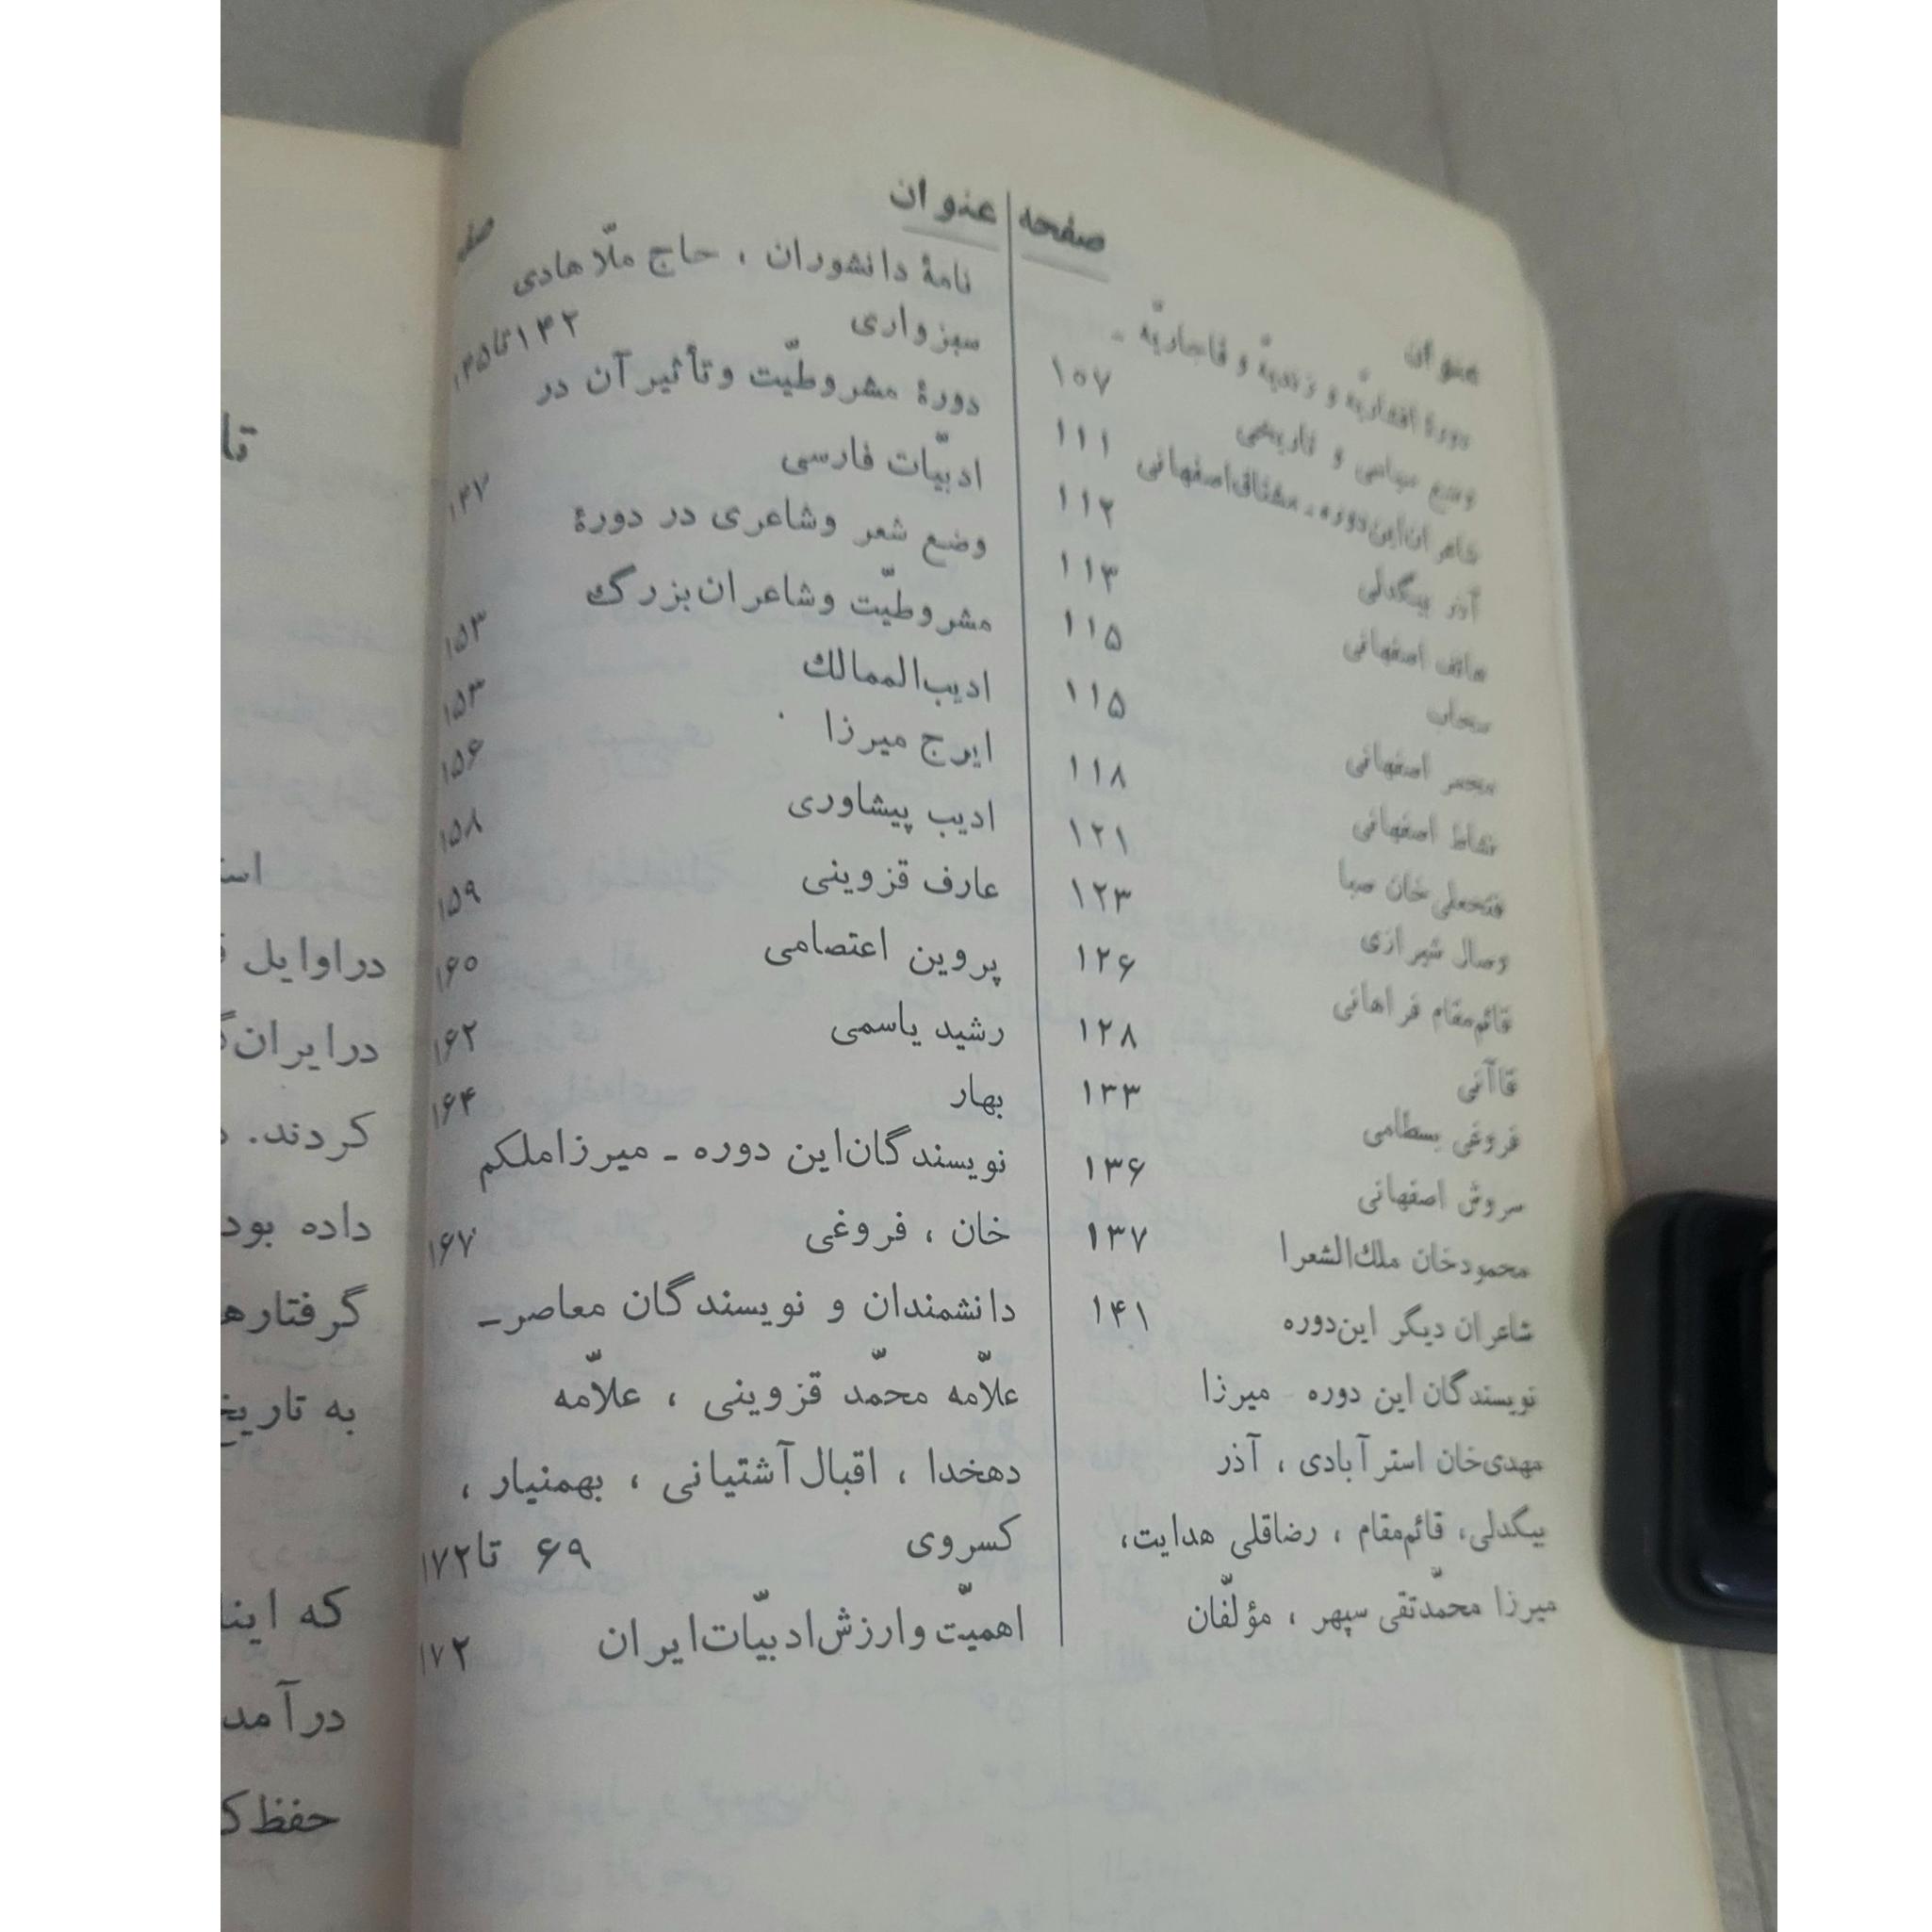 عنوان صفحه
دورهٔ افشاریّه و زندیّه و قاجاریّه ـ
وضع سیاسی و تاریخی ۱۰۷
شاعران این‌دوره ـ مشتاق‌اصفهانی ۱۱۱
آذر بیگدلی ۱۱۲
هاتف اصفهانی ۱۱۳
سحاب ۱۱۵
مجمر اصفهانی ۱۱۵
نشاط اصفهانی ۱۱۸
فتحعلی خان صبا ۱۲۱
وصال شیرازی ۱۲۳
قائم‌مقام فراهانی ۱۲۶
قاآنی ۱۲۸
فروغی بسطامی ۱۳۳
سروش اصفهانی ۱۳۶
محمودخان ملك‌الشعرا ۱۳۷
شاعران دیگر این‌دوره ۱۴۱
نویسندگان این دوره میرزا
مهدی‌خان استرآبادی ، آذر
بیگدلی، قائم‌مقام ، رضاقلی هدایت،
میرزا محمّدتقی سپهر ، مؤلّفان
عنوان
نامهٔ دانشوران ، حاج ملّاهادی
سبزواری ۱۴۲تا۱۴۵
دورهٔ مشروطیّت وتأثیرآن در
ادبیّات فارسی ۱۴۷
وضع شعر وشاعری در دورهٔ
مشروطیّت وشاعران‌بزرگ ۱۵۳
ادیب‌الممالك ۱۵۳
ایرج میرزا ۱۵۶
ادیب پیشاوری ۱۵۸
عارف قزوینی ۱۵۹
پروین اعتصامی ۱۶۰
رشید یاسمی ۱۶۲
بهار ۱۶۴
نویسندگان‌این دوره ـ میرزاملکم
خان ، فروغی ۱۶۷
دانشمندان و نویسندگان معاصرـ
علّامه محمّد قزوینی ، علّامه
دهخدا ، اقبال‌آشتیانی ، بهمنیار ،
کسروی ۶۹ تا۱۷۲
اهمیّت وارزش‌ادبیّات‌ایران ۱۷۲
دراوایل
درایران
کردند.
داده بود
به
که
درآمد